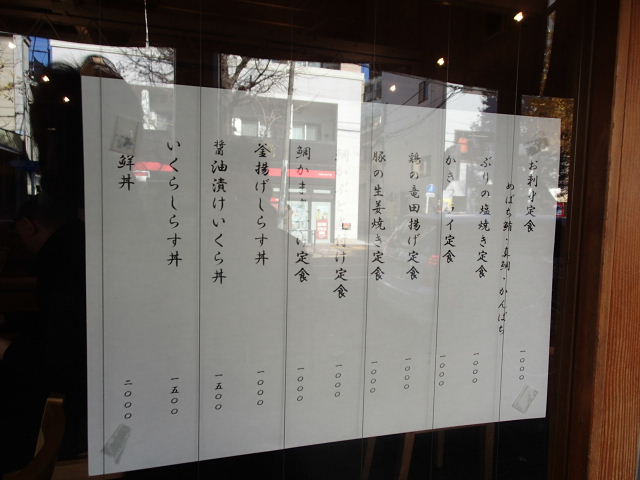 お刺身定食 一〇〇〇
めばち鮪・真鯛・かんぱち
ぶりの塩焼き定食 一〇〇〇
かき イ定食 一〇〇〇
鶏の竜田揚げ定食 一〇〇〇
豚の生姜焼き定食 一〇〇〇
付け定食 一〇〇〇
鯛かま い定食 一〇〇〇
釜揚げしらす丼 一〇〇〇
醤油漬けいくら丼 一五〇〇
いくらしらす丼 一五〇〇
鮮丼 二〇〇〇